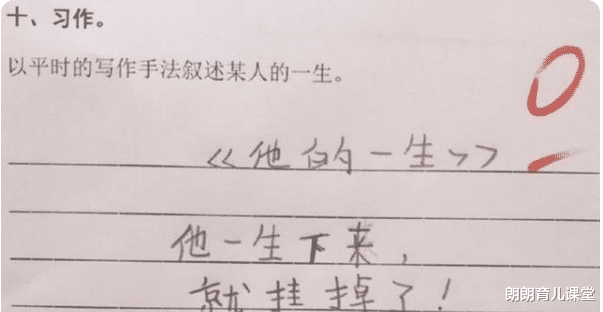 十、习作。
以平时的写作手法叙述某人的一生。
0
《他的一生》
他一生下来，
就挂掉了！
朗朗育儿课堂